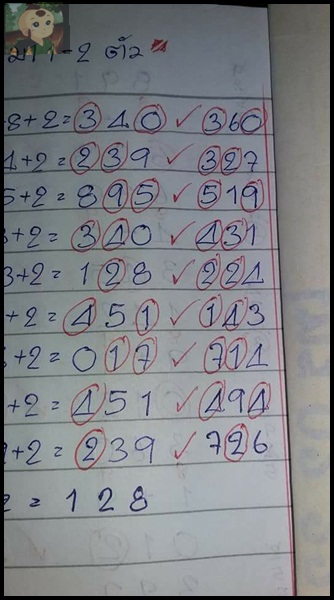 มา 1-2 ตัว
8+2=340 ✓ 360
4+2=239 ✓ 327
5+2=895 ✓ 519
3+2=340 ✓ 431
3+2=128 ✓ 224
+2=451 ✓ 143
+2=017 ✓ 714
+2=451 ✓ 494
+2=239 ✓ 726
=128